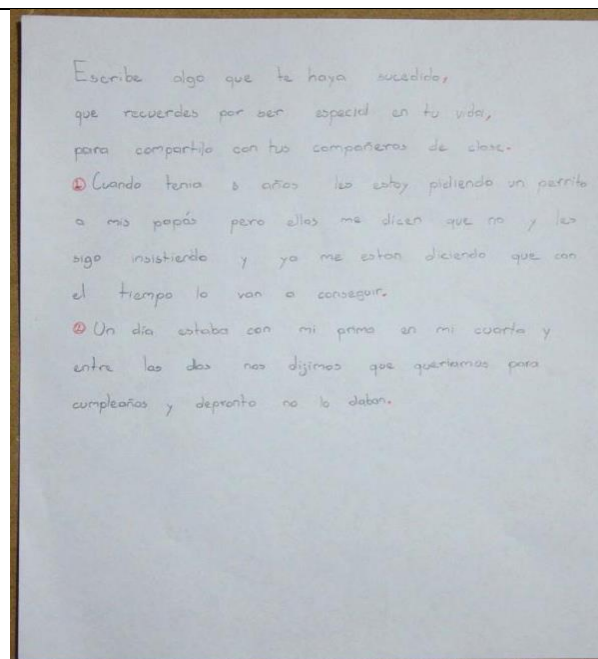 Escribe algo que te haya sucedido,
que recuerdes por ser especial en tu vida,
para compartilo con tus compañeros de clase.
① Cuando tenia 5 años les estoy pidiendo un perrito
a mis papás pero ellos me dicen que no y les
sigo insistiendo y ya me estan diciendo que con
el tiempo lo van a conseguir.
② Un día estaba con mi prima en mi cuarto y
entre las dos nos dijimos que queriamos para
cumpleaños y depronto no lo daban.